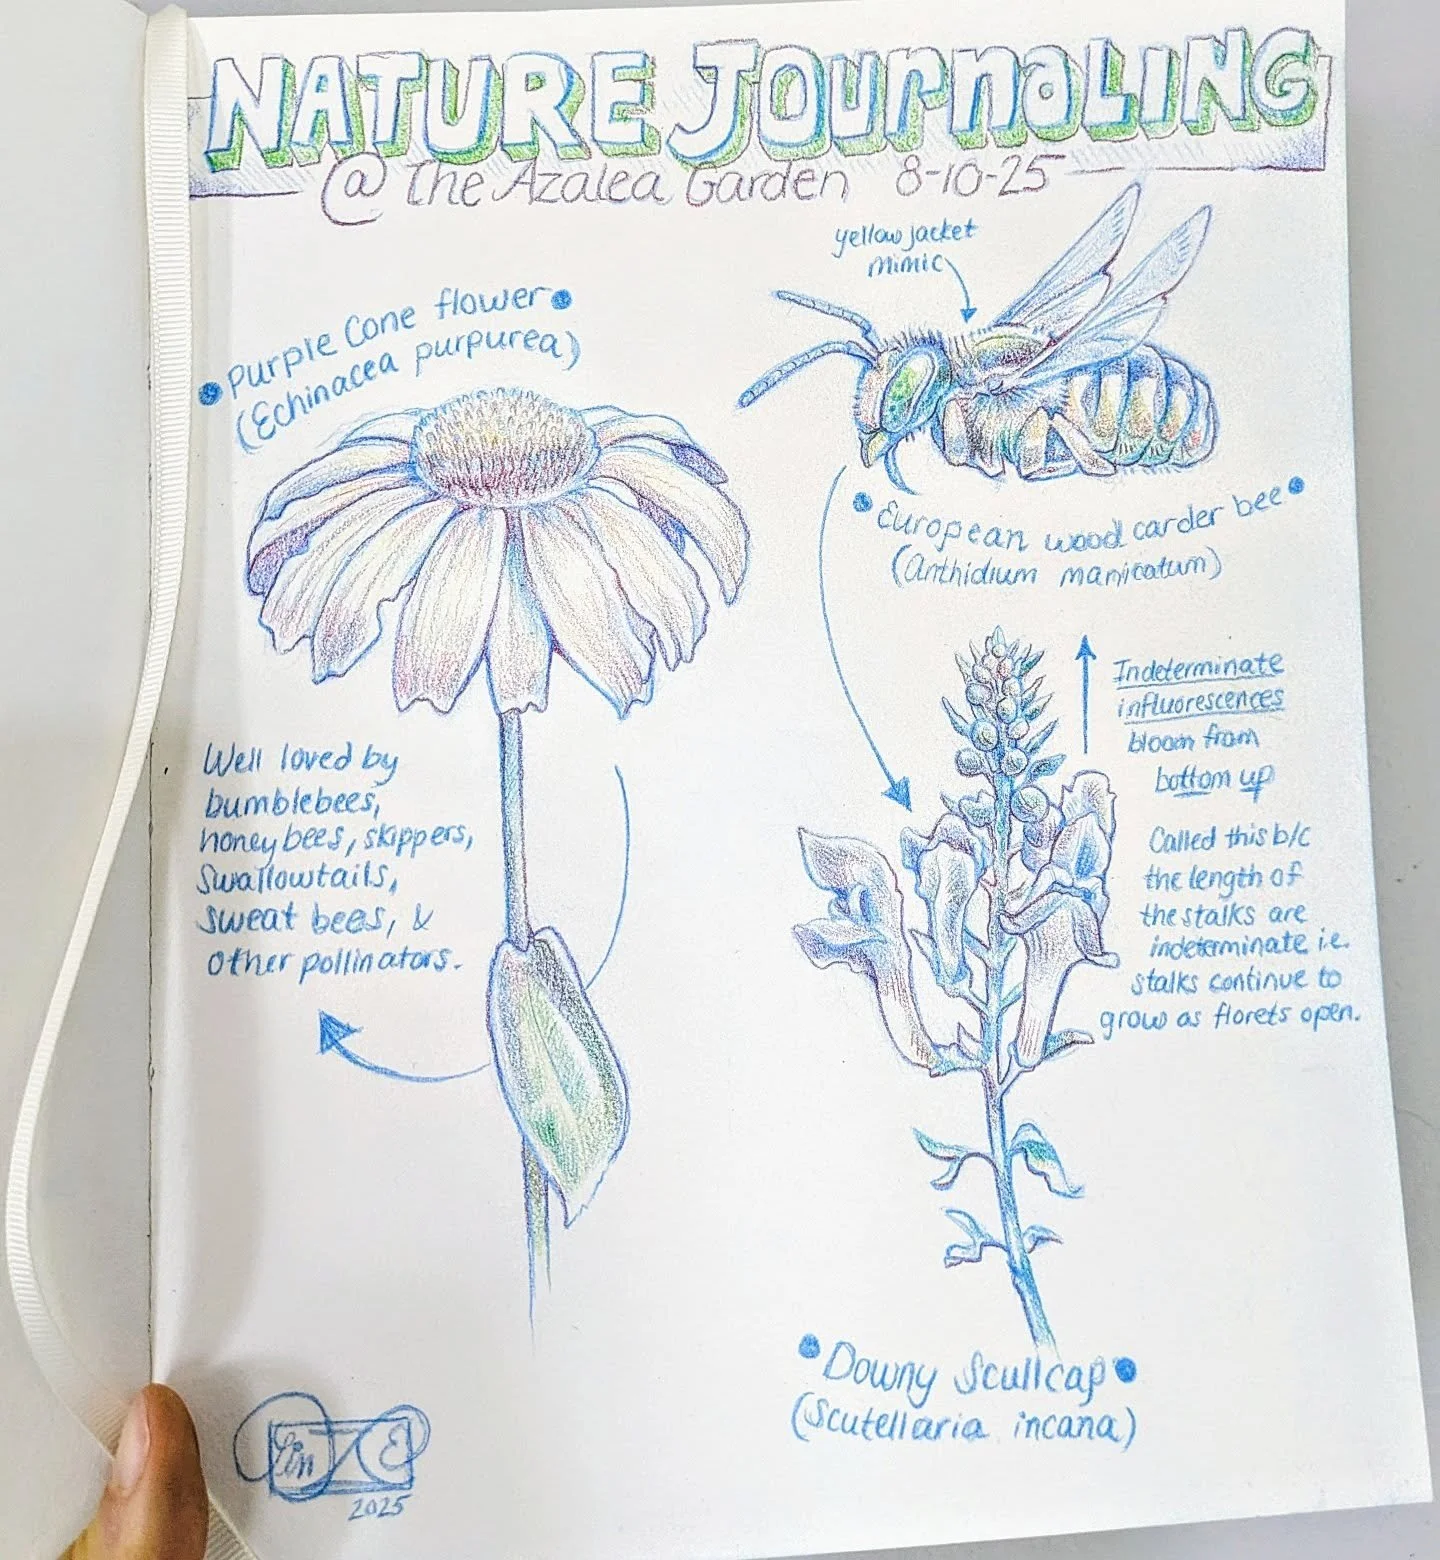 NATURE JOURNALING
@ The Azalea Garden 8-10-25
yellow jacket
mimic
Purple Cone flower
(Echinacea purpurea)
European wood carder bee
(Anthidium manicatum)
Indeterminate
influorescences
bloom from
bottom up
Called this b/c
the length of
the stalks are
indeterminate i.e.
stalks continue to
grow as florets open.
Well loved by
bumblebees,
honey bees, skippers,
Swallowtails,
sweat bees, &
other pollinators.
Downy Scullcap
(Scutellaria incana)
2025